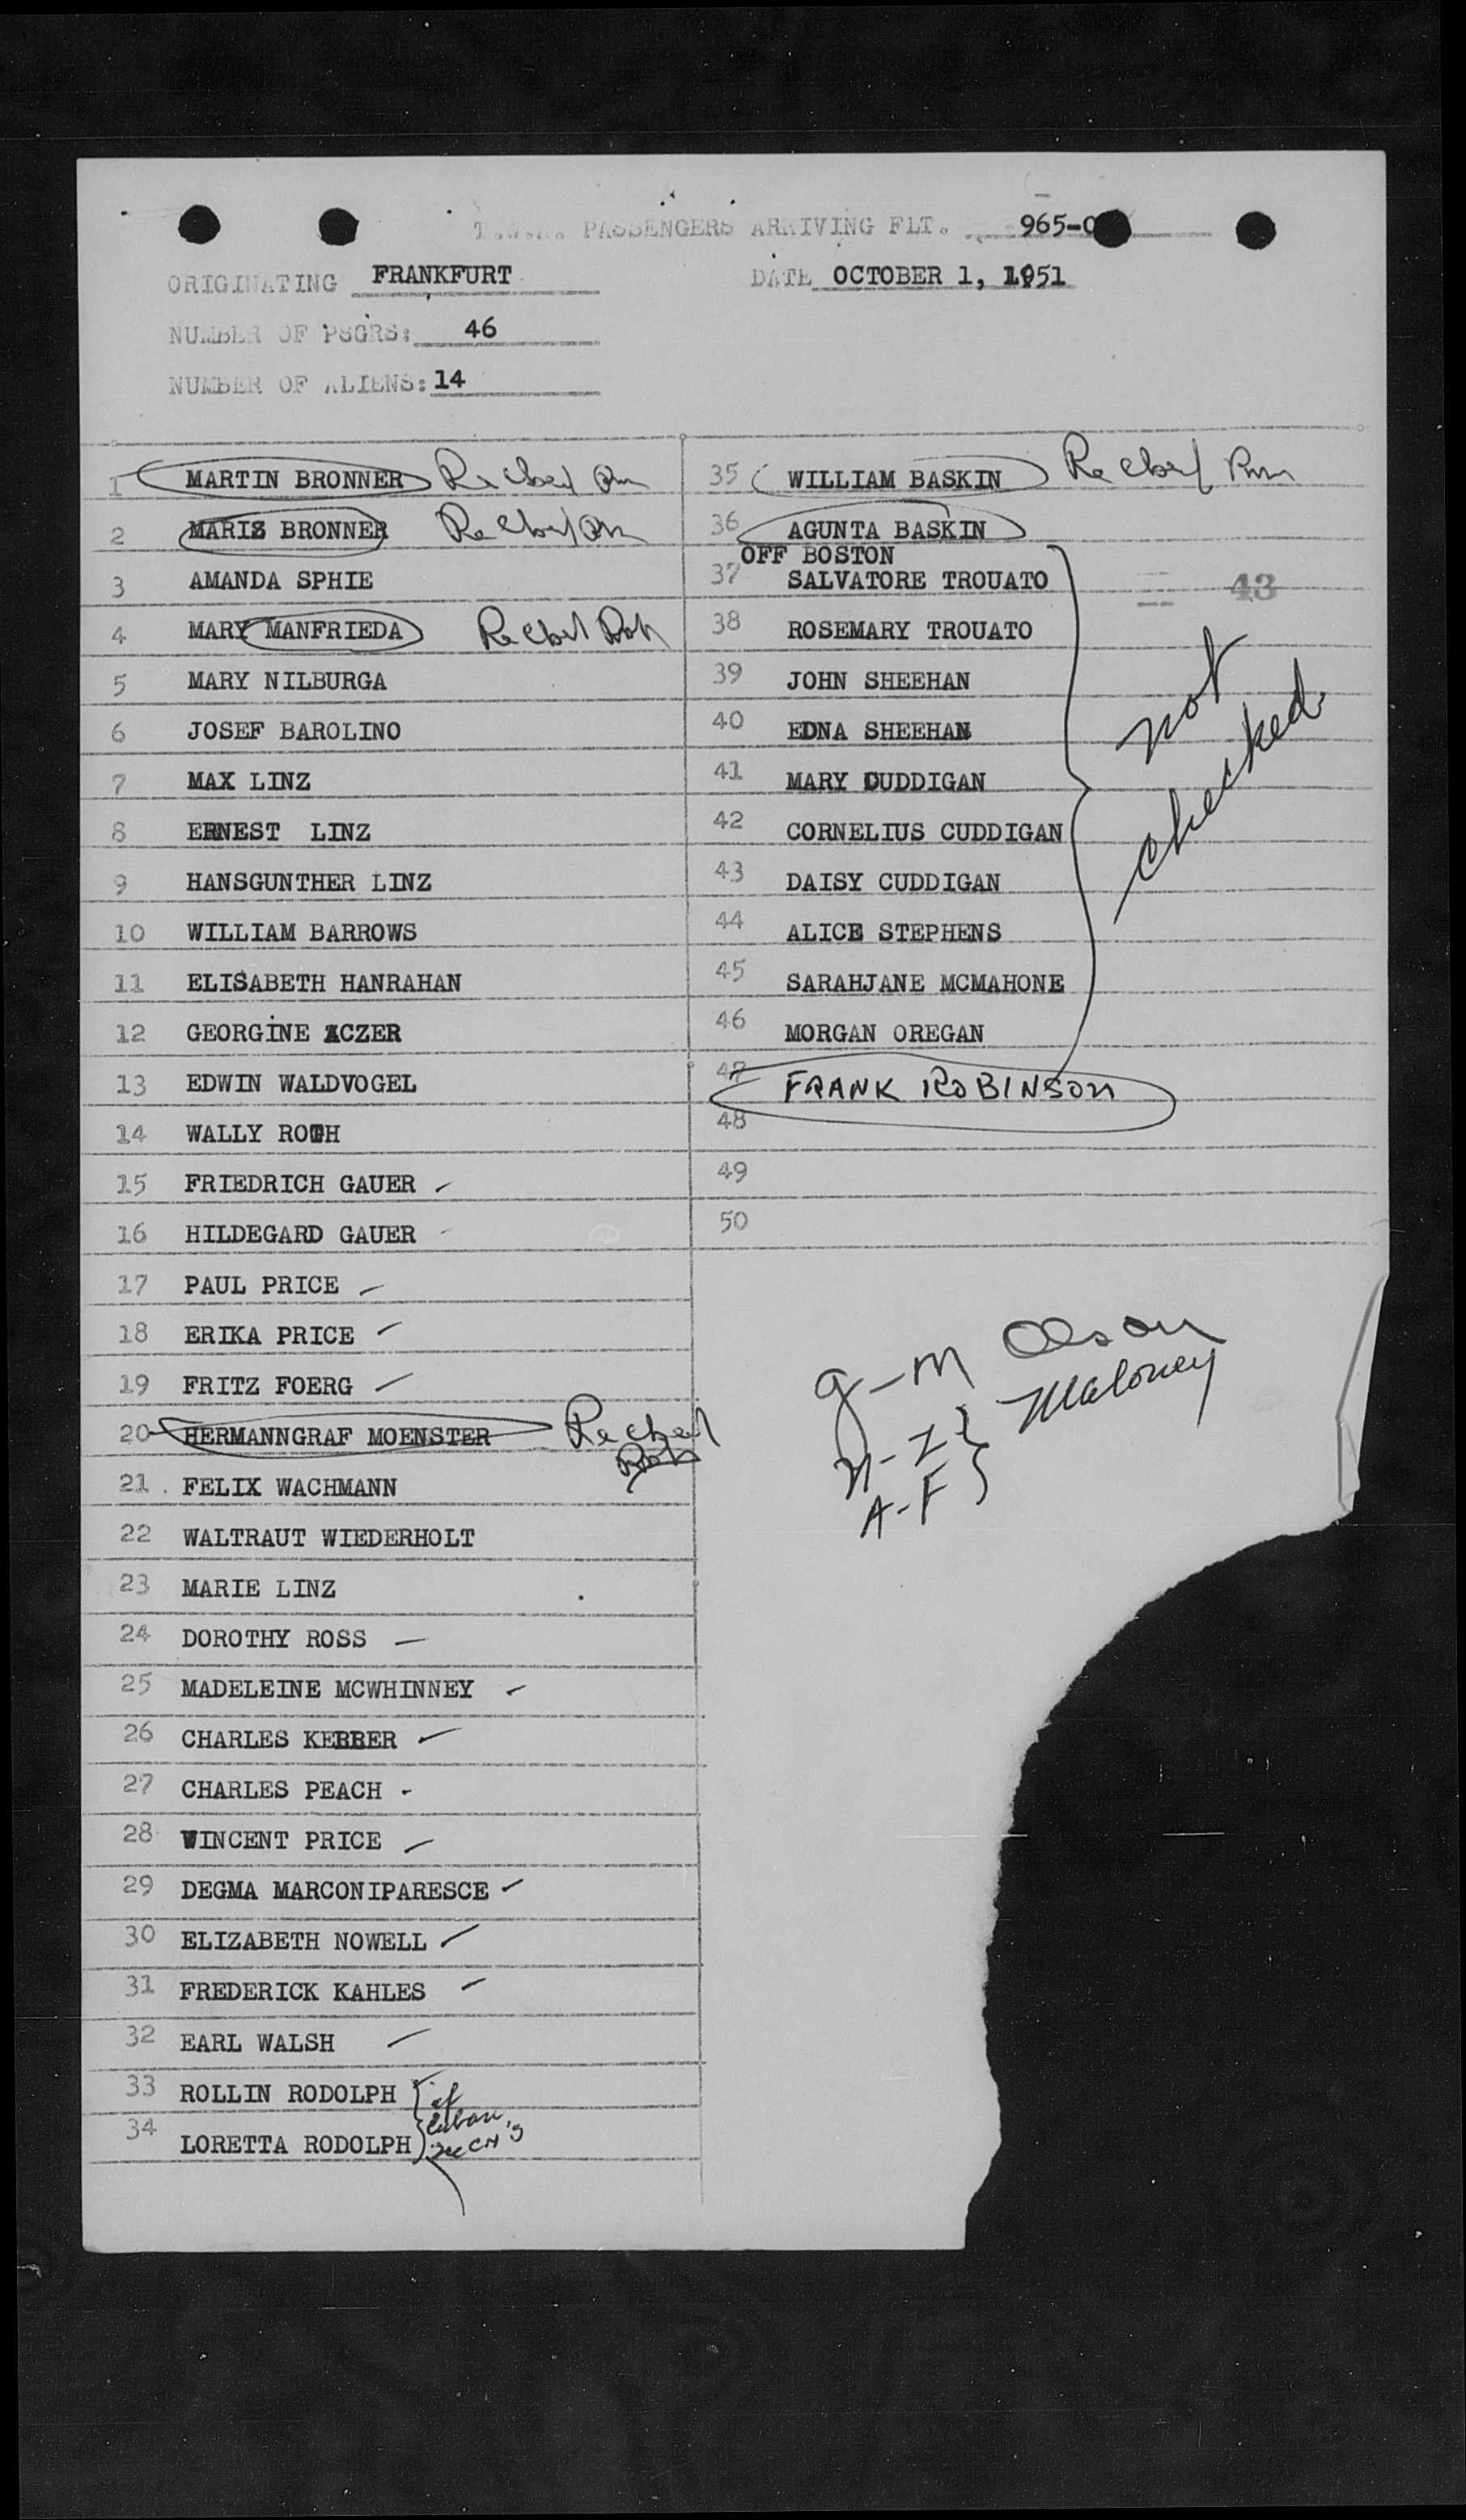 T.W.A. PASSENGERS ARRIVING FLT. 965-
ORIGINATING FRANKFURT DATE OCTOBER 1, 1951
NUMBER OF PSGRS: 46
NUMBER OF ALIENS: 14
1 MARTIN BRONNER
2 BRONNER
3 AMANDA SPHIE
4 MARY MANFRIEDA
5 MARY NILBURGA
6 JOSEF BAROLINO
7 MAX LINZ
8 ERNEST LINZ
9 HANSGUNTHER LINZ
10 WILLIAM BARROWS
11 ELISABETH HANRAHAN
12 GEORGINE ACZER
13 EDWIN WALDVOGEL
14 WALLY ROTH
15 FRIEDRICH GAUER
16 HILDEGARD GAUER
17 PAUL PRICE
18 ERIKA PRICE
19 FRITZ FOERG
20 HERMANNGRAF MOENSTER
21 FELIX WACHMANN
22 WALTRAUT WIEDERHOLT
23 MARIE LINZ
24 DOROTHY ROSS
25 MADELEINE MCWHINNEY
26 CHARLES KERBER
27 CHARLES PEACH
28 VINCENT PRICE
29 DEGMA MARCONIPARESCE
30 ELIZABETH NOWELL
31 FREDERICK KAHLES
32 EARL WALSH
33 ROLLIN RODOLPH
34 LORETTA RODOLPH
35 WILLIAM BASKIN
36 AGUNTA BASKIN
OFF BOSTON
37 SALVATORE TROUATO
43
38 ROSEMARY TROUATO
39 JOHN SHEEHAN
40 EDNA SHEEHAN
41 MARY CUDDIGAN
42 CORNELIUS CUDDIGAN
43 DAISY CUDDIGAN
44 ALICE STEPHENS
45 SARAHJANE MCMAHONE
46 MORGAN OREGAN
not
checked
47 FRANK ROBINSON
48
49
50
G-M Olson
N-Z } Maloney
A-F }